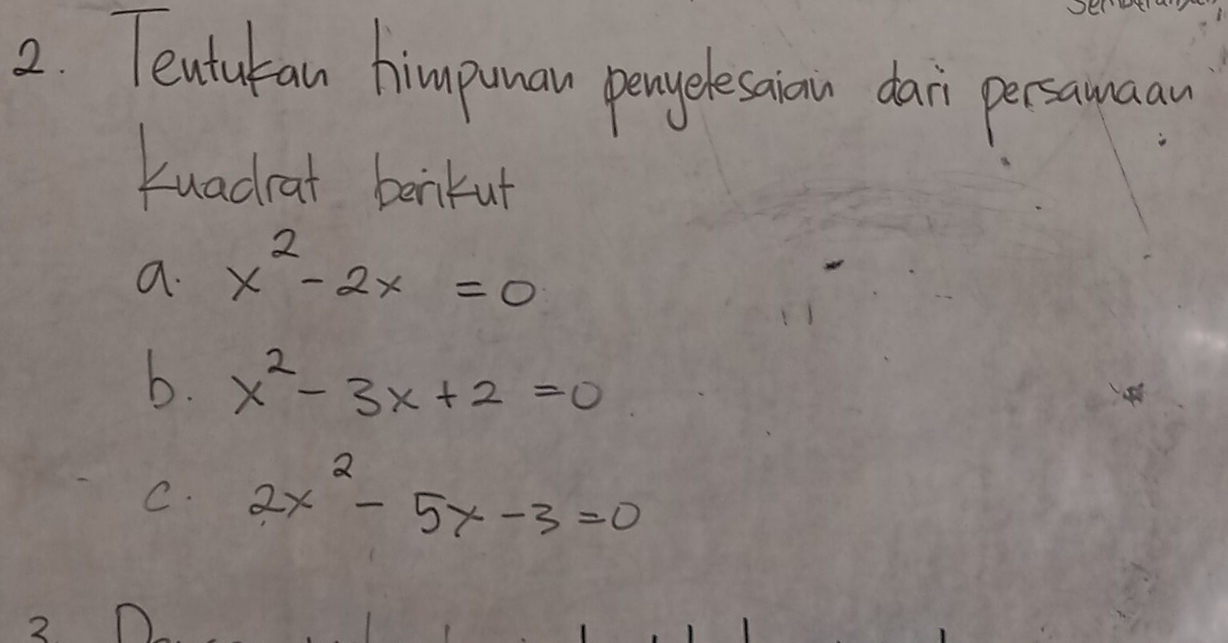 2. Tentukan himpunan penyelesaian dari persamaan
kuadrat berikut
a. x² - 2x = 0
b. x² - 3x + 2 = 0
c. 2x² - 5x - 3 = 0
3